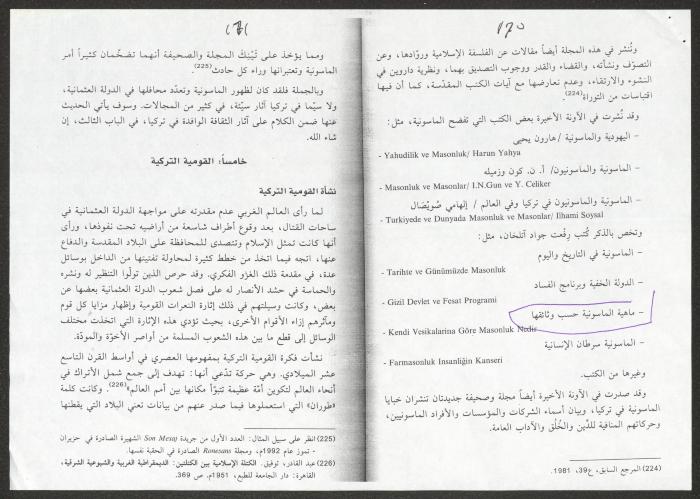 ١٧٠
وتُنشر في هذه المجلة أيضاً مقالات عن الفلسفة الإسلامية وروّادها، وعن
التصوّف ونشأته، والقضاء والقدر ووجوب التصديق بهما، ونظرية داروين في
النشوء والارتقاء، وعدم تعارضها مع آيات الكتب المقدّسة، كما أن فيها
اقتباسات من التوراة(224).
وقد نُشرت في الآونة الأخيرة بعض الكتب التي تفضح الماسونية، مثل:
– اليهودية والماسونية / هارون يحيى
- Yahudilik ve Masonluk/ Harun Yahya
– الماسونية والماسونيون/ أ. ن. كون وزميله
- Masonluk ve Masonlar/ I.N.Gun ve Y. Celiker
– الماسونية والماسونيون في تركيا وفي العالم / إلهامي صُويْصَال
- Turkiyede ve Dunyada Masonluk ve Masonlar/ Ilhami Soysal
وتخص بالذكر كُتب رِفْعت جواد آتلخان، مثل:
– الماسونية في التاريخ واليوم
- Tarihte ve Günümüzde Masonluk
– الدولة الخفية وبرنامج الفساد
- Gizil Devlet ve Fesat Programi
– ماهية الماسونية حسب وثائقها
- Kendi Vesikalarina Göre Masonluk Nedir
– الماسونية سرطان الإنسانية
- Farmasonluk Insanliğin Kanseri
وغيرها من الكتب.
وقد صدرت في الآونة الأخيرة أيضاً مجلة وصحيفة جديدتان تنشران خبايا
الماسونية في تركيا، وبيان أسماء الشركات والمؤسسات والأفراد الماسونيين،
وحركاتهم المنافية للدِّين والخُلُق والآداب العامة.
(224) المرجع السابق، ع39، 1981.
١٧١
ومما يؤخذ على تَيْنِكَ المجلة والصحيفة أنهما تضخّمان كثيراً أمر
الماسونية وتعتبرانها وراء كل حادث(225).
وبالجملة فلقد كان لظهور الماسونية وتعدّد محافلها في الدولة العثمانية،
ولا سيّما في تركيا آثار سيّئة، في كثير من المجالات. وسوف يأتي الحديث
عنها ضمن الكلام على آثار الثقافة الوافدة في تركيا، في الباب الثالث، إن
شاء الله.
خامساً: القومية التركية
نشأة القومية التركية
لما رأى العالم الغربي عدم مقدرته على مواجهة الدولة العثمانية في
ساحات القتال، بعد وقوع أطراف شاسعة من أراضيه تحت نفوذها، ورأى
أنها كانت تمثل الإسلام وتتصدى للمحافظة على البلاد المقدسة والدفاع
عنها، اتجه فيما اتخذ من خطط كثيرة لمحاولة تفتيتها من الداخل بوسائل
عدة، في مقدمة ذلك الغزو الفكري. وقد حرص الذين تولّوا التنظير له ونشره
والحماسة في حشد الأنصار له على فصل شعوب الدولة العثمانية بعضها عن
بعض، وكانت وسيلتهم في ذلك إثارة النعرات القومية وإظهار مزايا كل قوم
ومآثرهم إزاء الأقوام الأخرى، بحيث تؤدي هذه الإثارة التي اتخذت مختلف
الوسائل إلى قطع ما بين هذه الشعوب المسلمة من أواصر الأخوّة والمودّة.
نشأت فكرة القومية التركية بمفهومها العصري في أواسط القرن التاسع
عشر الميلادي. وهي حركة تدّعي أنها: تهدف إلى جمع شمل الأتراك في
أنحاء العالم لتكوين أمّة عظيمة تتبوّأ مكانها بين أمم العالم»(226). وكانت كلمة
«طوران» التي استعملوها فيما صدر عنهم من بيانات تعني البلاد التي يقطنها
(225) انظر على سبيل المثال: العدد الأول من جريدة Son Mesaj الشهيرة الصادرة في حزيران
– تموز عام 1992م، ومجلة Ronesans الصادرة في الحقبة نفسها.
(226) عبد القادر، توفيق. الكتلة الإسلامية بين الكتلتين: الديمقراطية الغربية والشيوعية الشرقية،
القاهرة: دار الجامعة للطبع، 1951م. ص 369.